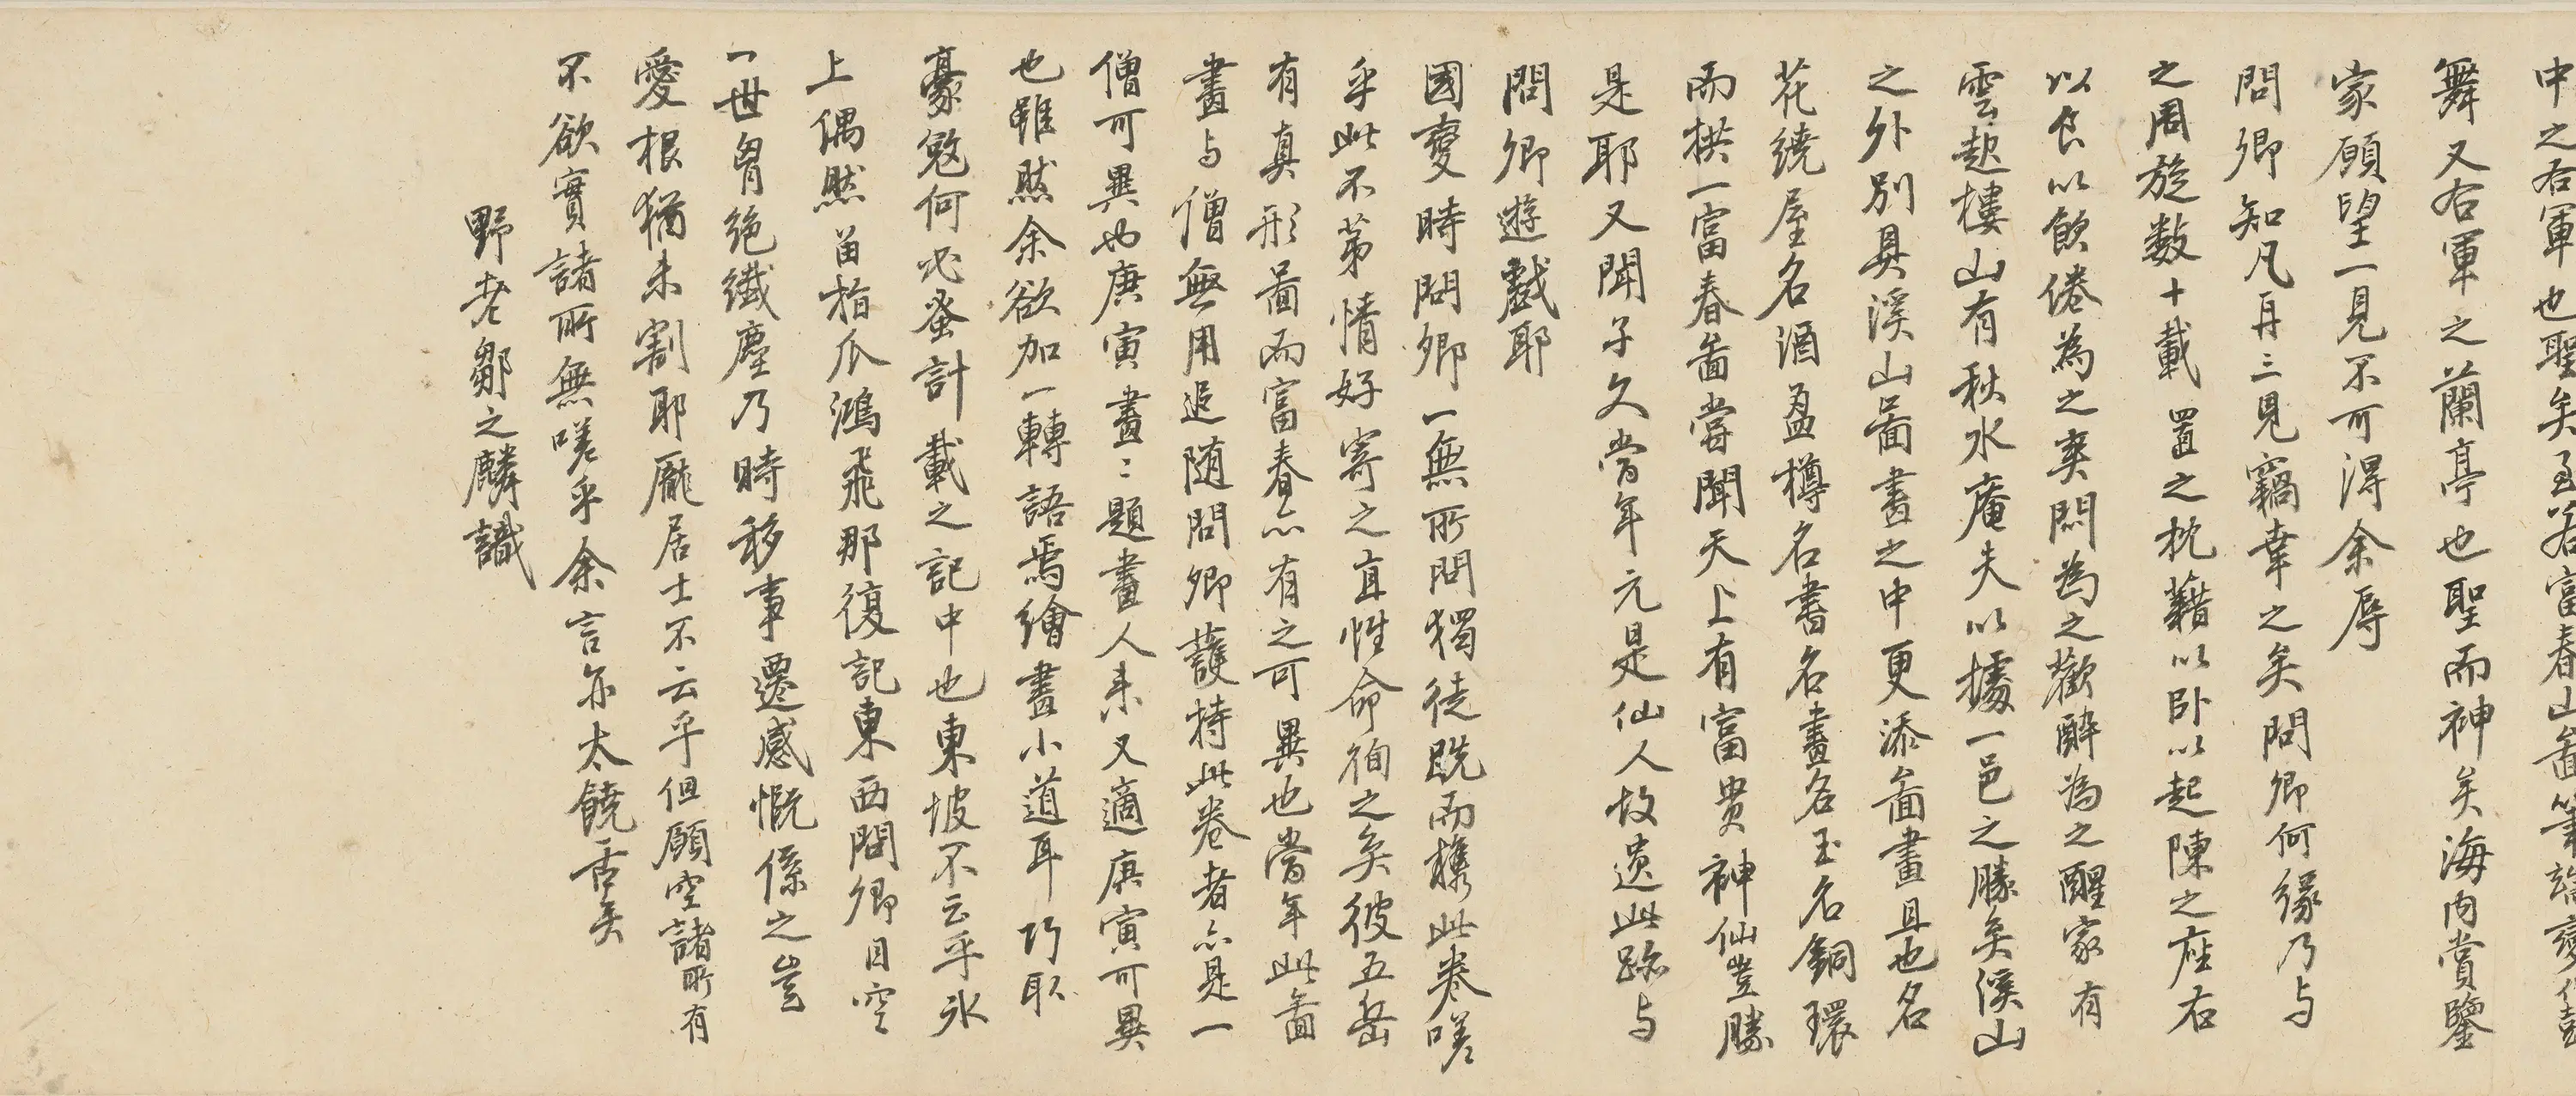 中之右軍也聖矣至若富春山啚筆端變化鼓
舞又右軍之蘭亭也聖而神矣海内賞鑒
家願望一見不可得余辱
問卿知凡再三見竊幸之矣問卿何緣乃与
之周旋数十載置之枕藉以卧以起陳之座右
以食以飲倦為之爽悶為之歡醉為之醒家有
雲起樓山有秋水庵夫以據一邑之勝矣溪山
之外別具溪山啚畫之中更添啚畫且也名
花繞屋名酒盈樽名書名畫名玉名銅環
而拱一富春啚當聞天上有富贵神仙豈勝
是耶又聞子久當年元是仙人故遗此跡与
問卿遊戲耶
國變時問卿一無所問獨徒跣而攜此卷嗟
乎此不第情好寄之直性命徇之矣彼五岳
有真形啚而富春亦有之可異也當年此啚
畫与僧無用追随問卿護持此卷者亦是一
僧可異也庚寅畫〻題畫人来又適庚寅可異
也雖然余欲加一轉語焉繪畫小道耳巧取
豪敓何必蚤計載之記中也東坡不云乎氷
上偶然留指爪鴻飛那復記東西問卿目空
一世胷絶纖塵乃時移事遷感慨係之豈
愛根猶未割耶龐居士不云乎但願空諸所有
不欲實諸所無嗟乎余言亦太饒舌矣
野老鄒之麟識